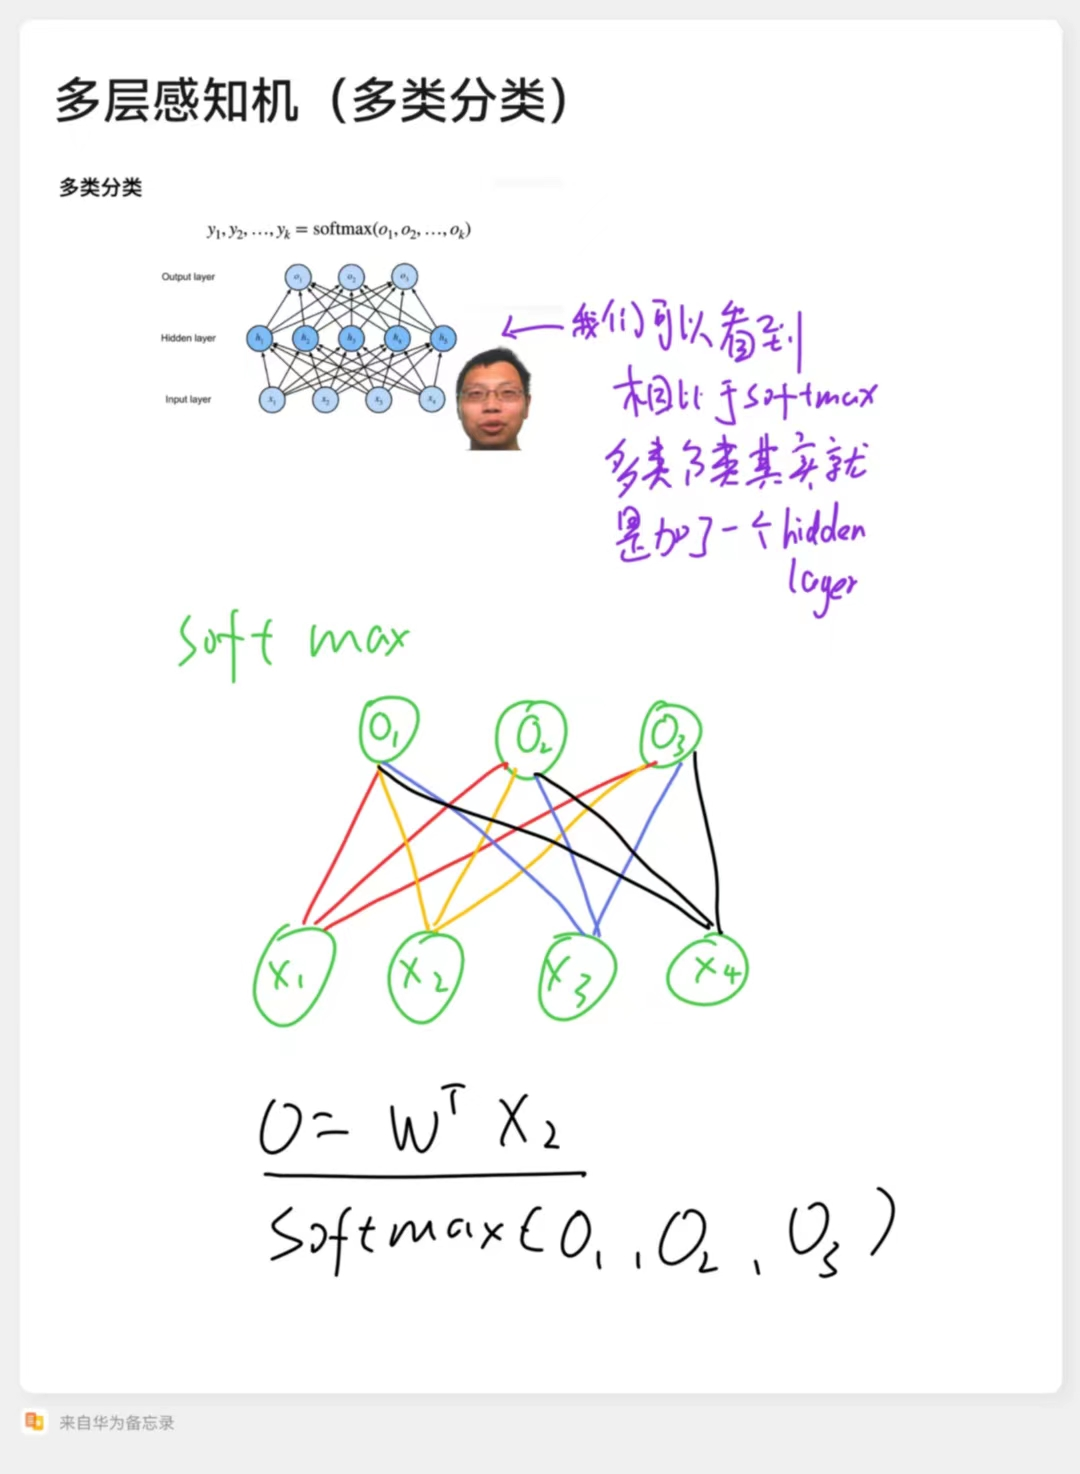 多层感知机（多类分类）
多类分类
y₁, y₂, …, yₖ = softmax(o₁, o₂, …, oₖ)
Output layer
o₁ o₂ o₃
Hidden layer
h₁ h₂ h₃ h₄ h₅
Input layer
x₁ x₂ x₃ x₄
我们可以看到
相比于softmax
多类分类其实就
是加了一个hidden
layer
soft max
O₁ O₂ O₃
X₁ X₂ X₃ X₄
O = Wᵀ X₂
Softmax(O₁, O₂, O₃)
来自华为备忘录